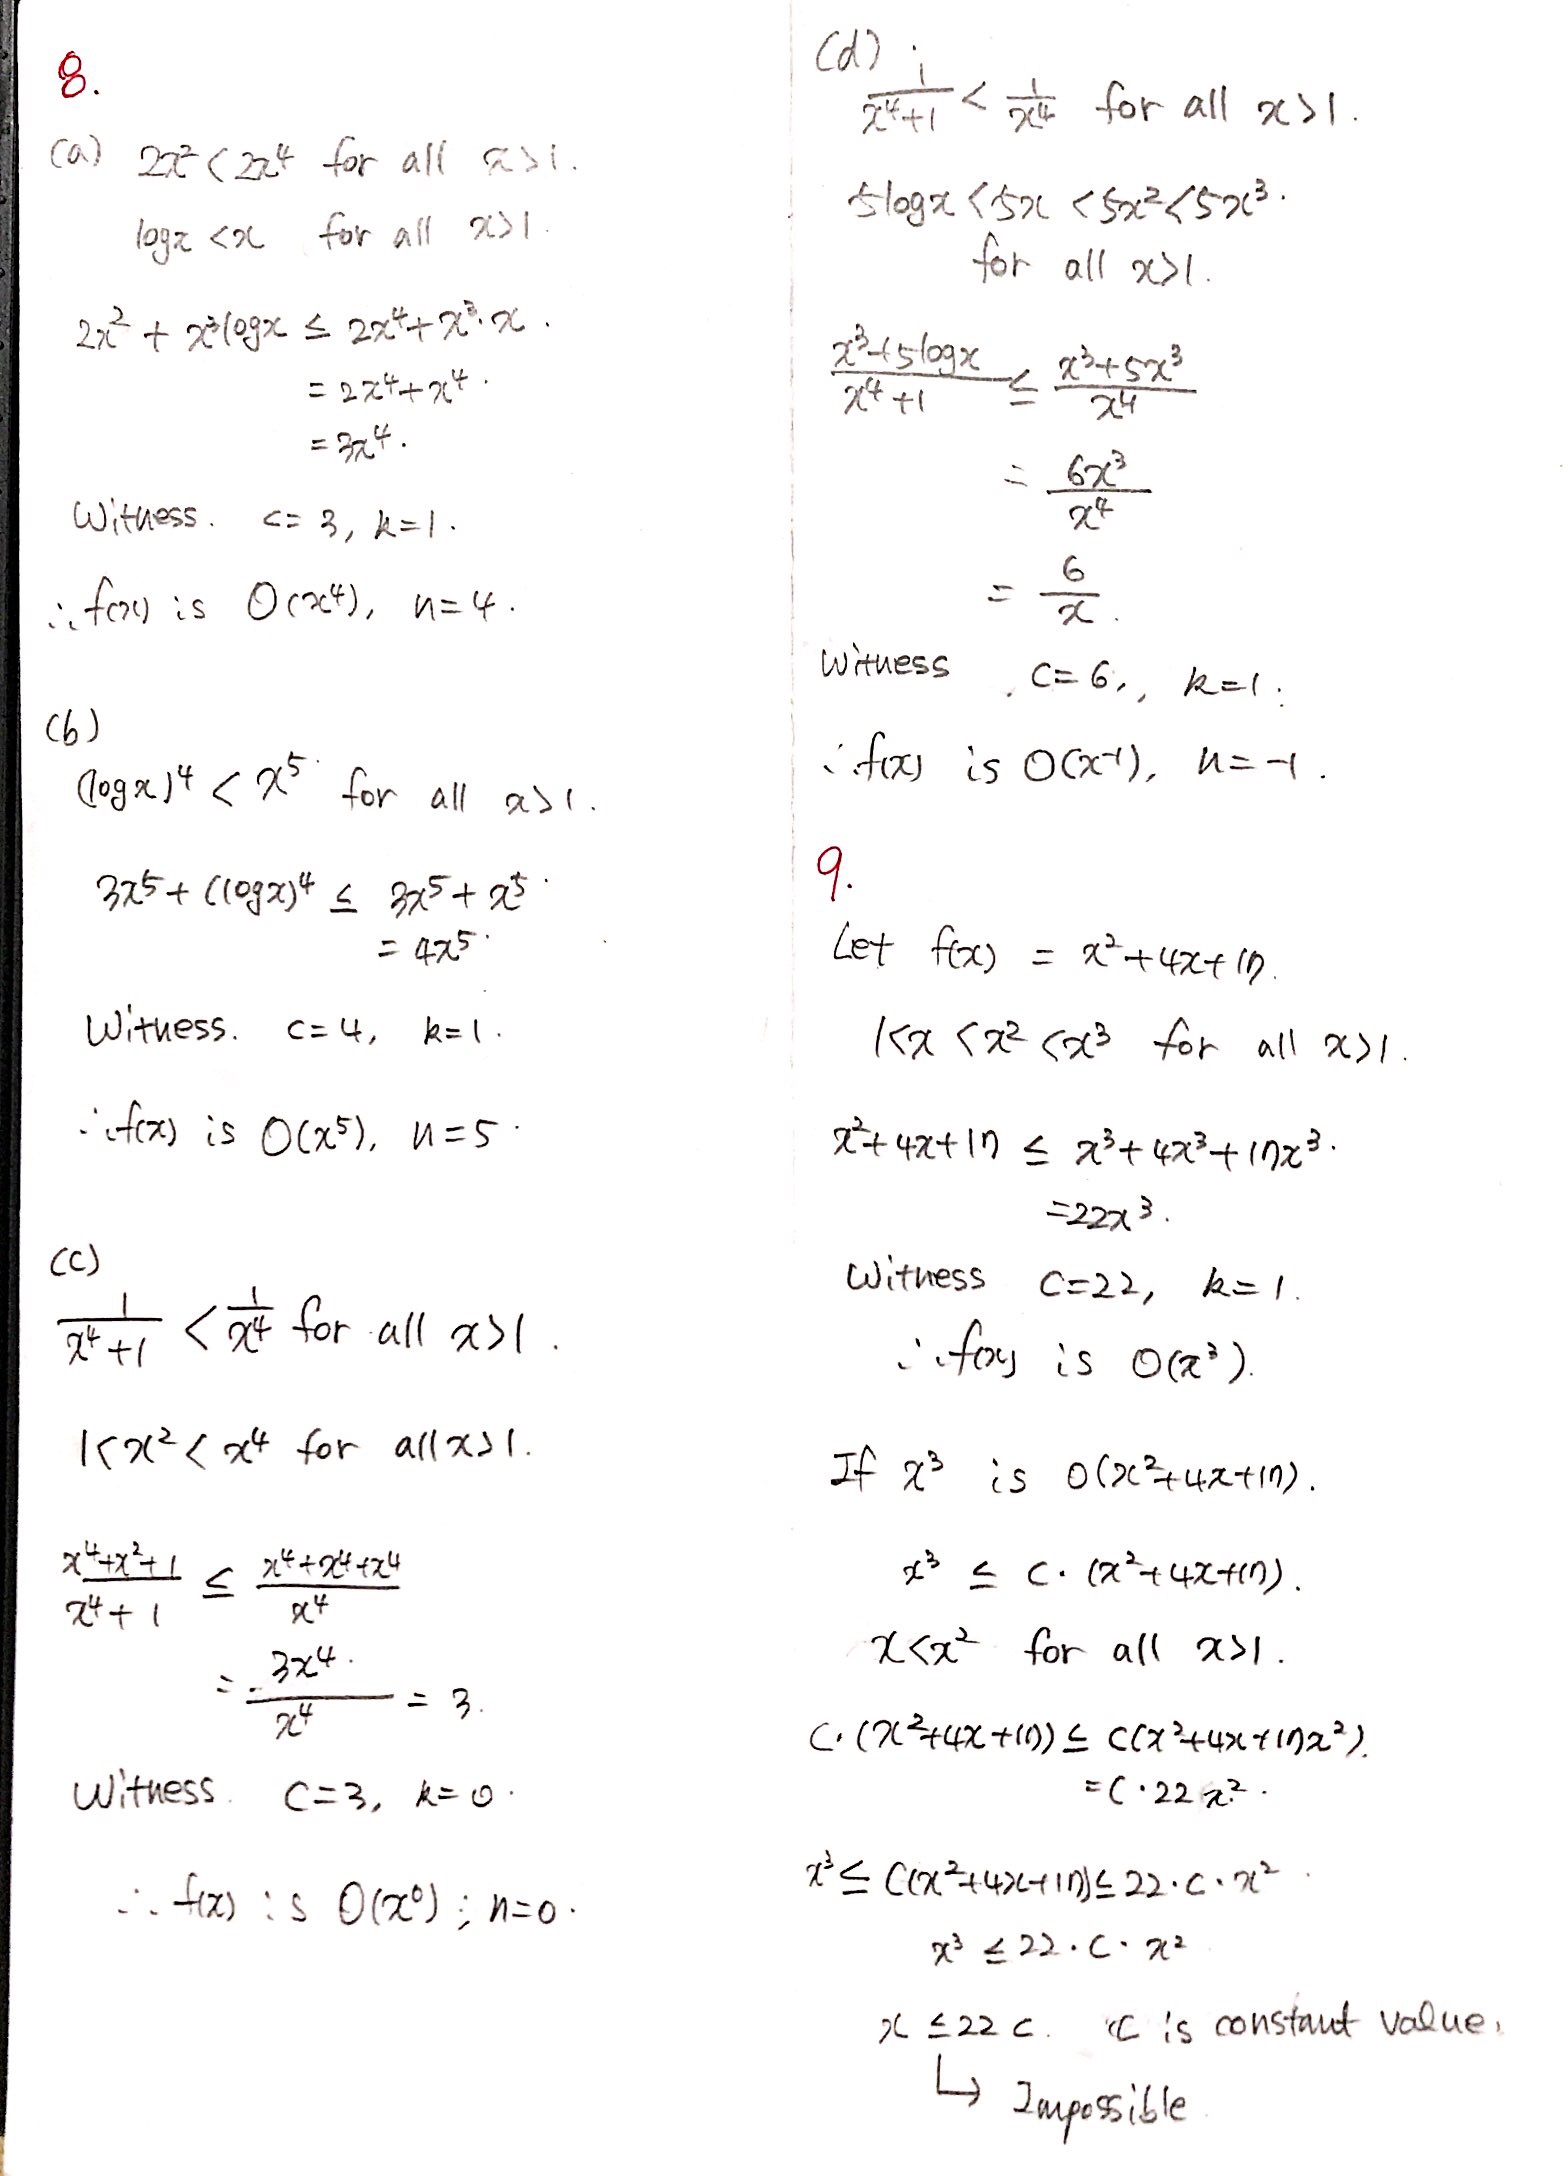 8.
(a) 2x² < 2x⁴ for all x>1.
logx < x for all x>1.
2x² + x³logx ≤ 2x⁴+x³·x.
= 2x⁴+x⁴.
= 3x⁴.
Witness. c=3, k=1.
∴f(x) is O(x⁴), n=4.
(b)
(logx)⁴ < x⁵ for all x>1.
3x⁵+(logx)⁴ ≤ 3x⁵+x⁵.
= 4x⁵.
Witness. c=4, k=1.
∴f(x) is O(x⁵), n=5.
(c)
1/(x⁴+1) < 1/x⁴ for all x>1.
1<x²<x⁴ for all x>1.
(x⁴+x²+1)/(x⁴+1) ≤ (x⁴+x⁴+x⁴)/x⁴
= 3x⁴/x⁴ = 3.
Witness. C=3, k=0.
∴ f(x) is O(x⁰); n=0.
(d)
1/(x⁴+1) < 1/x⁴ for all x>1.
5logx<5x<5x²<5x³.
for all x>1.
(x³+5logx)/(x⁴+1) ≤ (x³+5x³)/x⁴
= 6x³/x⁴
= 6/x.
Witness. C=6, k=1.
∴f(x) is O(x⁻¹), n=-1.
9.
Let f(x) = x²+4x+17.
1<x<x²<x³ for all x>1.
x²+4x+17 ≤ x³+4x³+17x³.
=22x³.
Witness C=22, k=1.
∴f(x) is O(x³).
If x³ is O(x²+4x+17).
x³ ≤ C·(x²+4x+17).
x<x² for all x>1.
C·(x²+4x+17) ≤ C(x²+4x+17x²).
=C·22x².
x³≤ C(x²+4x+17)≤22·C·x²
x³ ≤22·C·x²
x ≤22 C. C is constant value.
↳ Impossible